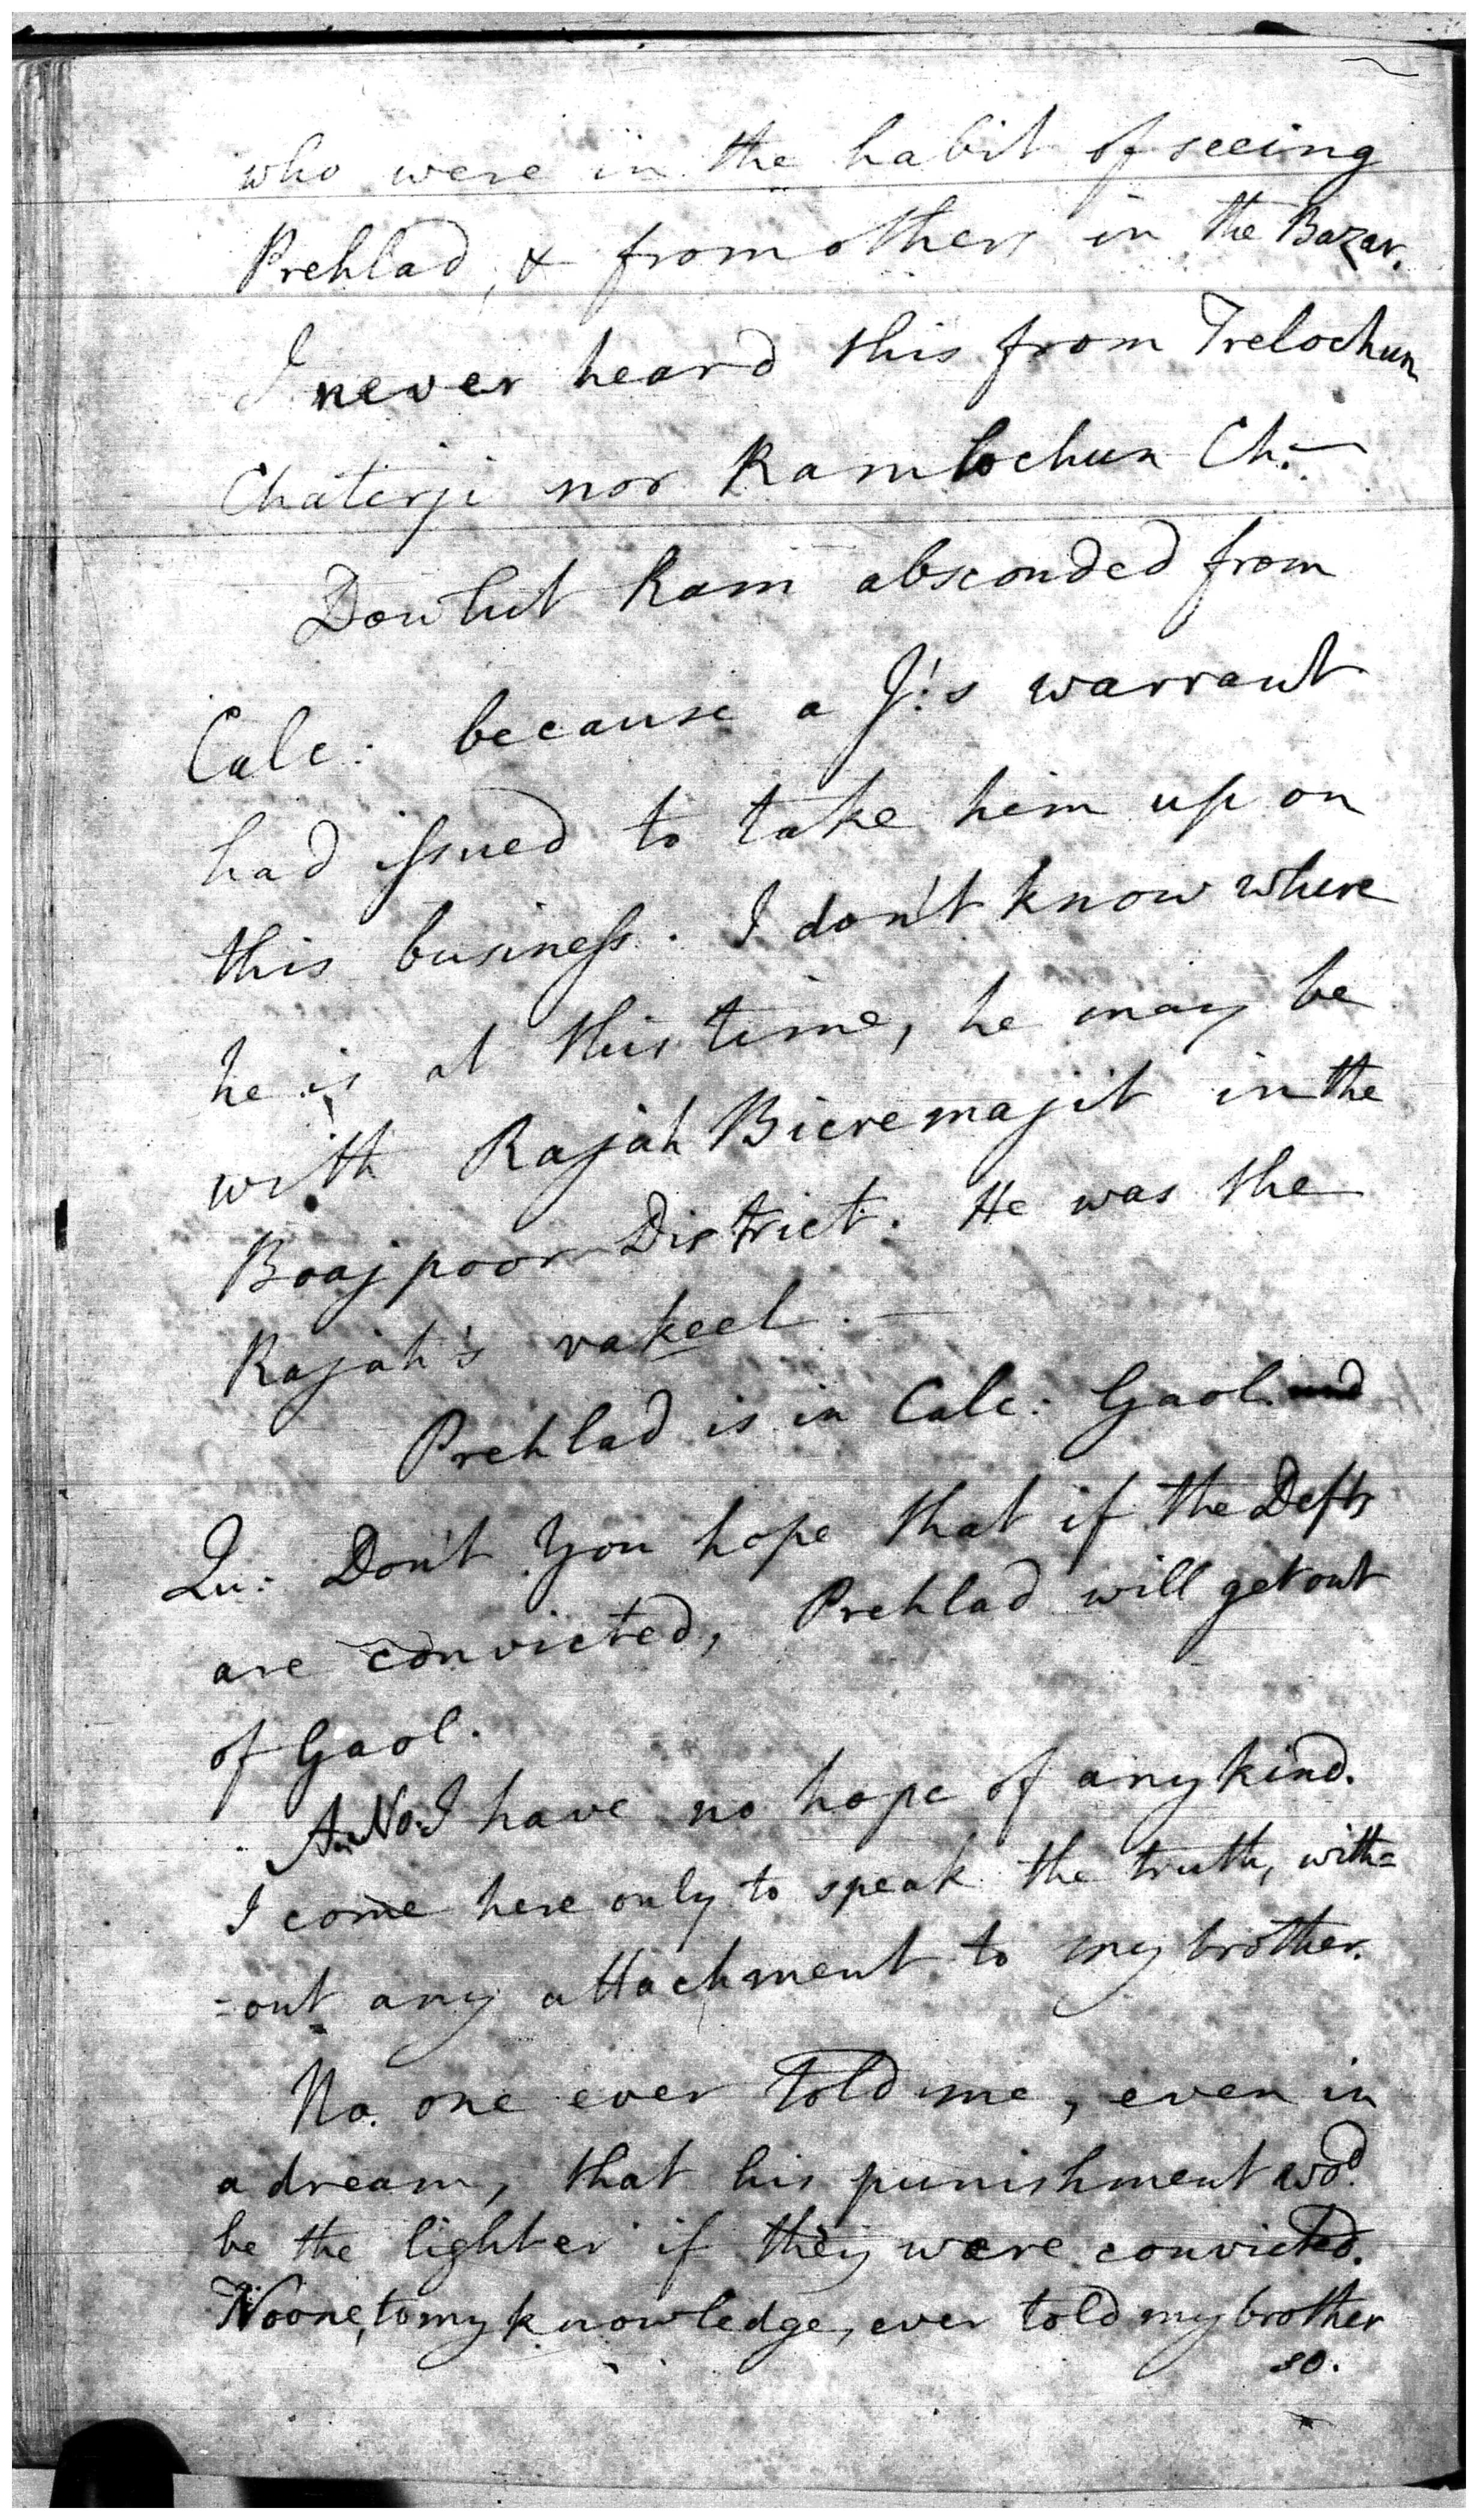 who were in the habit of seeing
Prehlad, & from others in the Bazar.
I never heard this from Trelochun
Chaterji nor Ramlochun Ch:—
Dowlut Ram absconded from
Calc: because a J:'s warrant
had issued to take him up on
this business. I don't know where
he is at this time, he may be
with Rajah Bicremajit in the
Boajpoor District. He was the
Rajah's vakeel. —
Prehlad is in Calc: Gaol.
Qu: Don't you hope that if the Defts
are convicted, Prehlad will get out
of Gaol.
An: No. I have no hope of any kind.
I come here only to speak the truth, with=
=out any attachment to my brother.
No one ever told me, even in
a dream, that his punishment wod.
be the lighter if they were convicted.
No one, to my knowledge, ever told my brother
so.